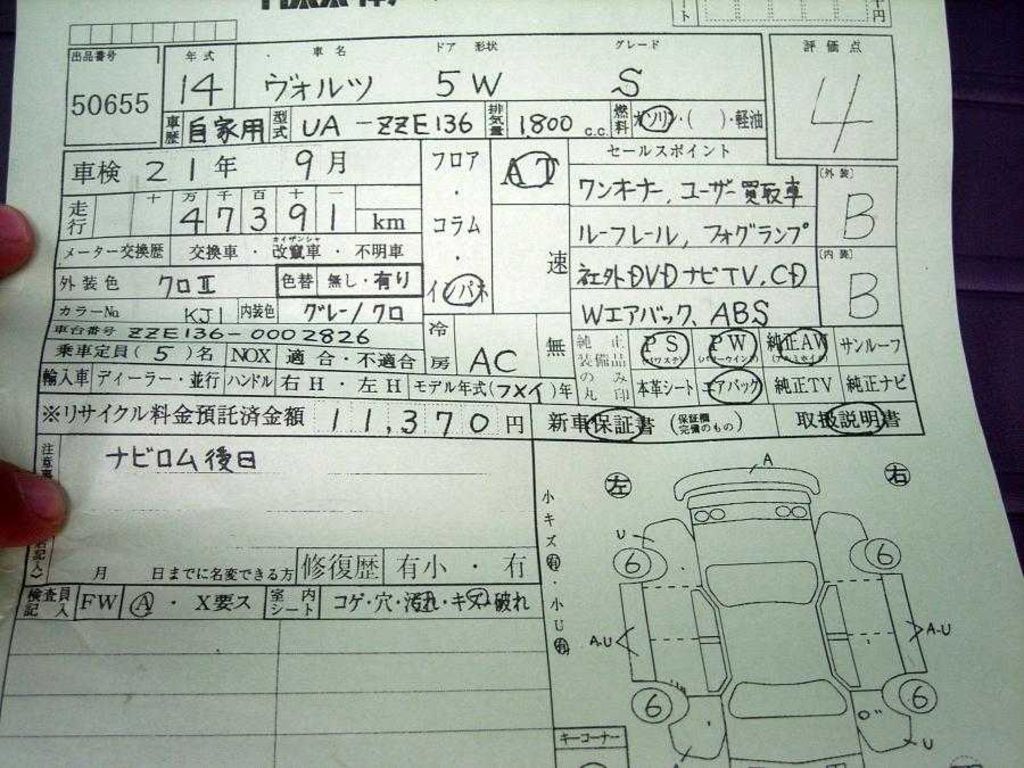 ト 千円
出品番号 年式 車名 ドア 形状 グレード 評価点
50655 14 ヴォルツ 5W S 4
車歴 自家用 型式 UA-ZZE136 排気量 1800 c.c. 燃料 ガソリン・( )・軽油
車検 21年 9月 フロア・コラム・インパネ AT 速 セールスポイント
ワンオーナー、ユーザー買取車 [外装] B
走行 十万千百十一 47391 km
ルーフレール, フォグランプ
メーター交換歴 交換車・改竄車・不明車
カイザンシャ
社外DVDナビTV,CD [内装] B
外装色 クロⅡ 色替 無し・有り
カラーNo. KJ1 内装色 グレー/クロ
Wエアバック、ABS
車台番号 ZZE136-0002826
冷房 AC 無 純正装備品のみ丸印 PS (パワステ) PW (パワーウインド) 純正AW (アルミホイール) サンルーフ
乗車定員(5)名 NOX 適合・不適合
輸入車 ディーラー・並行 ハンドル 右H・左H モデル年式(フメイ)年 本革シート エアバック 純正TV 純正ナビ
※リサイクル料金預託済金額 11,370円 新車保証書 (保証欄完備のもの) 取扱説明書
ナビロム後日
月 日までに名変できる方 修復歴 有小・有
検査員記入 FW A・X要ス 室内シート コゲ・穴・汚れ・キズ・破れ
小キズ有・小U有
左 右
A
U
6 6
A・U A-U
6 6
A U
キーコーナー